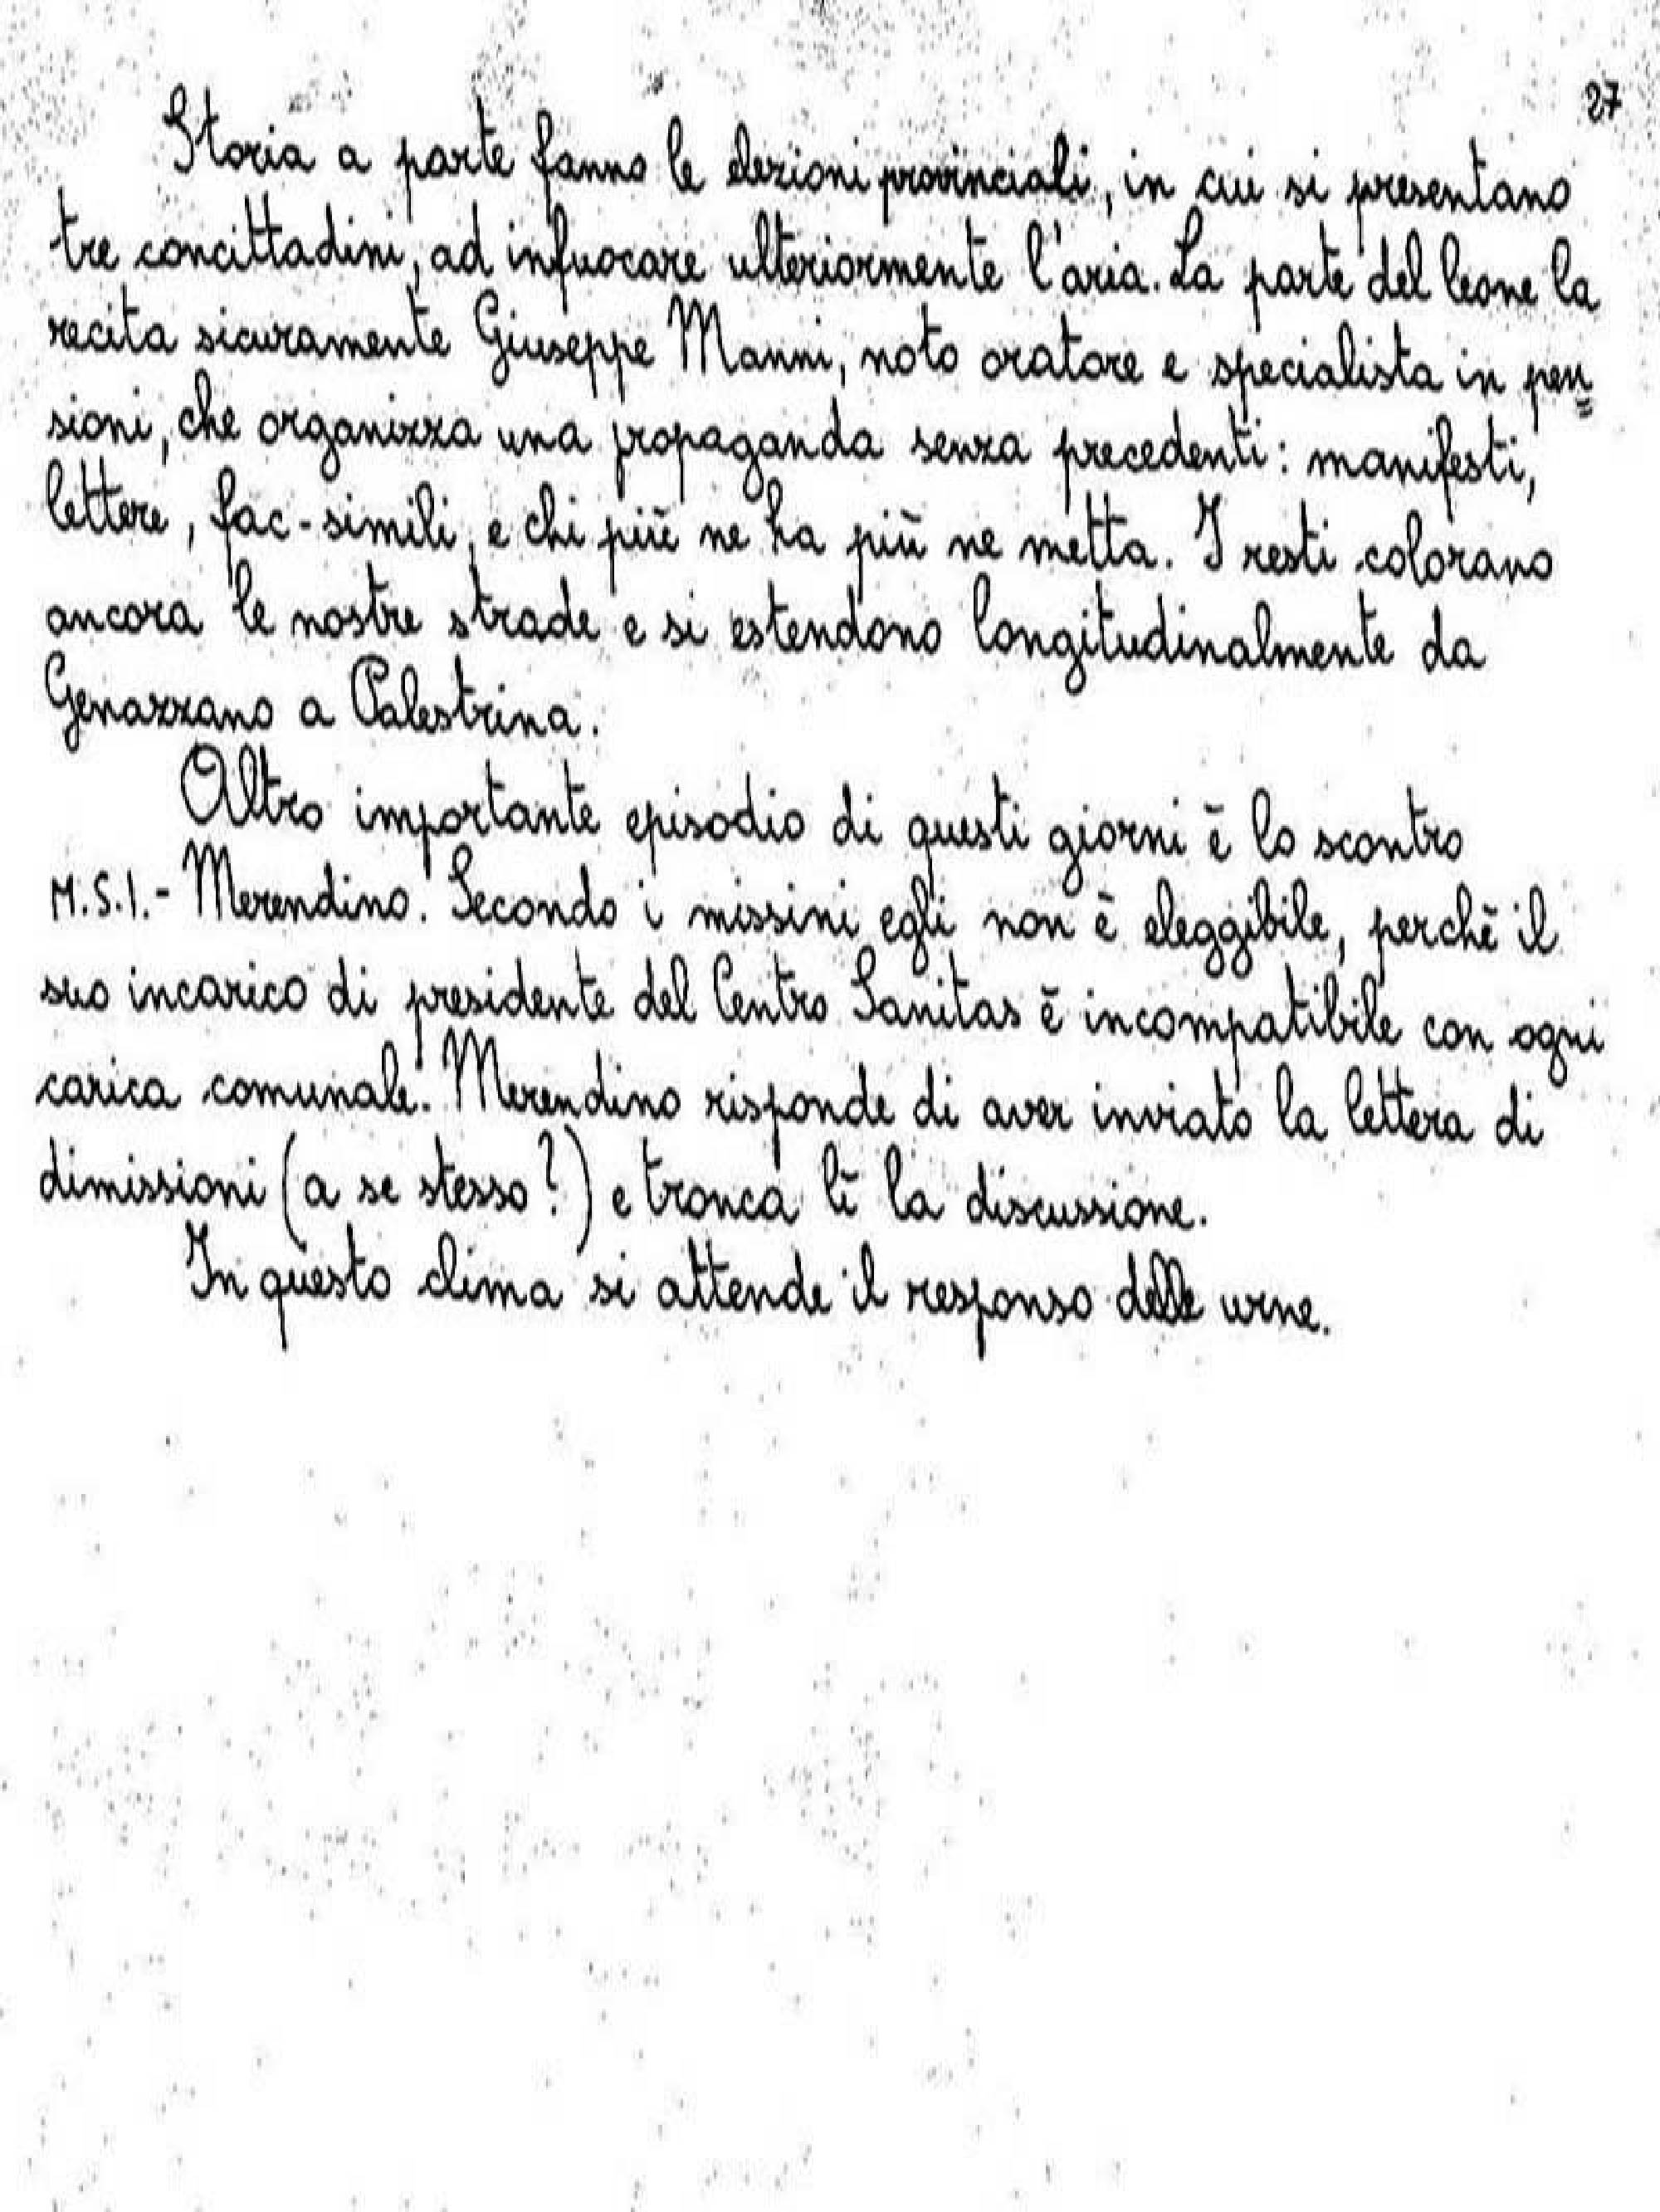 27
Storia a parte fanno le elezioni provinciali, in cui si presentano
tre concittadini, ad infuocare ulteriormente l'aria. La parte del leone la
recita sicuramente Giuseppe Manni, noto oratore e specialista in pen=
sioni, che organizza una propaganda senza precedenti: manifesti,
lettere, fac-simili, e chi più ne ha più ne metta. I resti colorano
ancora le nostre strade e si estendono longitudinalmente da
Genazzano a Palestrina.
Altro importante episodio di questi giorni è lo scontro
M.S.I.- Merendino. Secondo i missini egli non è eleggibile, perchè il
suo incarico di presidente del Centro Sanitas è incompatibile con ogni
carica comunale. Merendino risponde di aver inviato la lettera di
dimissioni (a se stesso?) e tronca lì la discussione.
In questo clima si attende il responso delle urne.